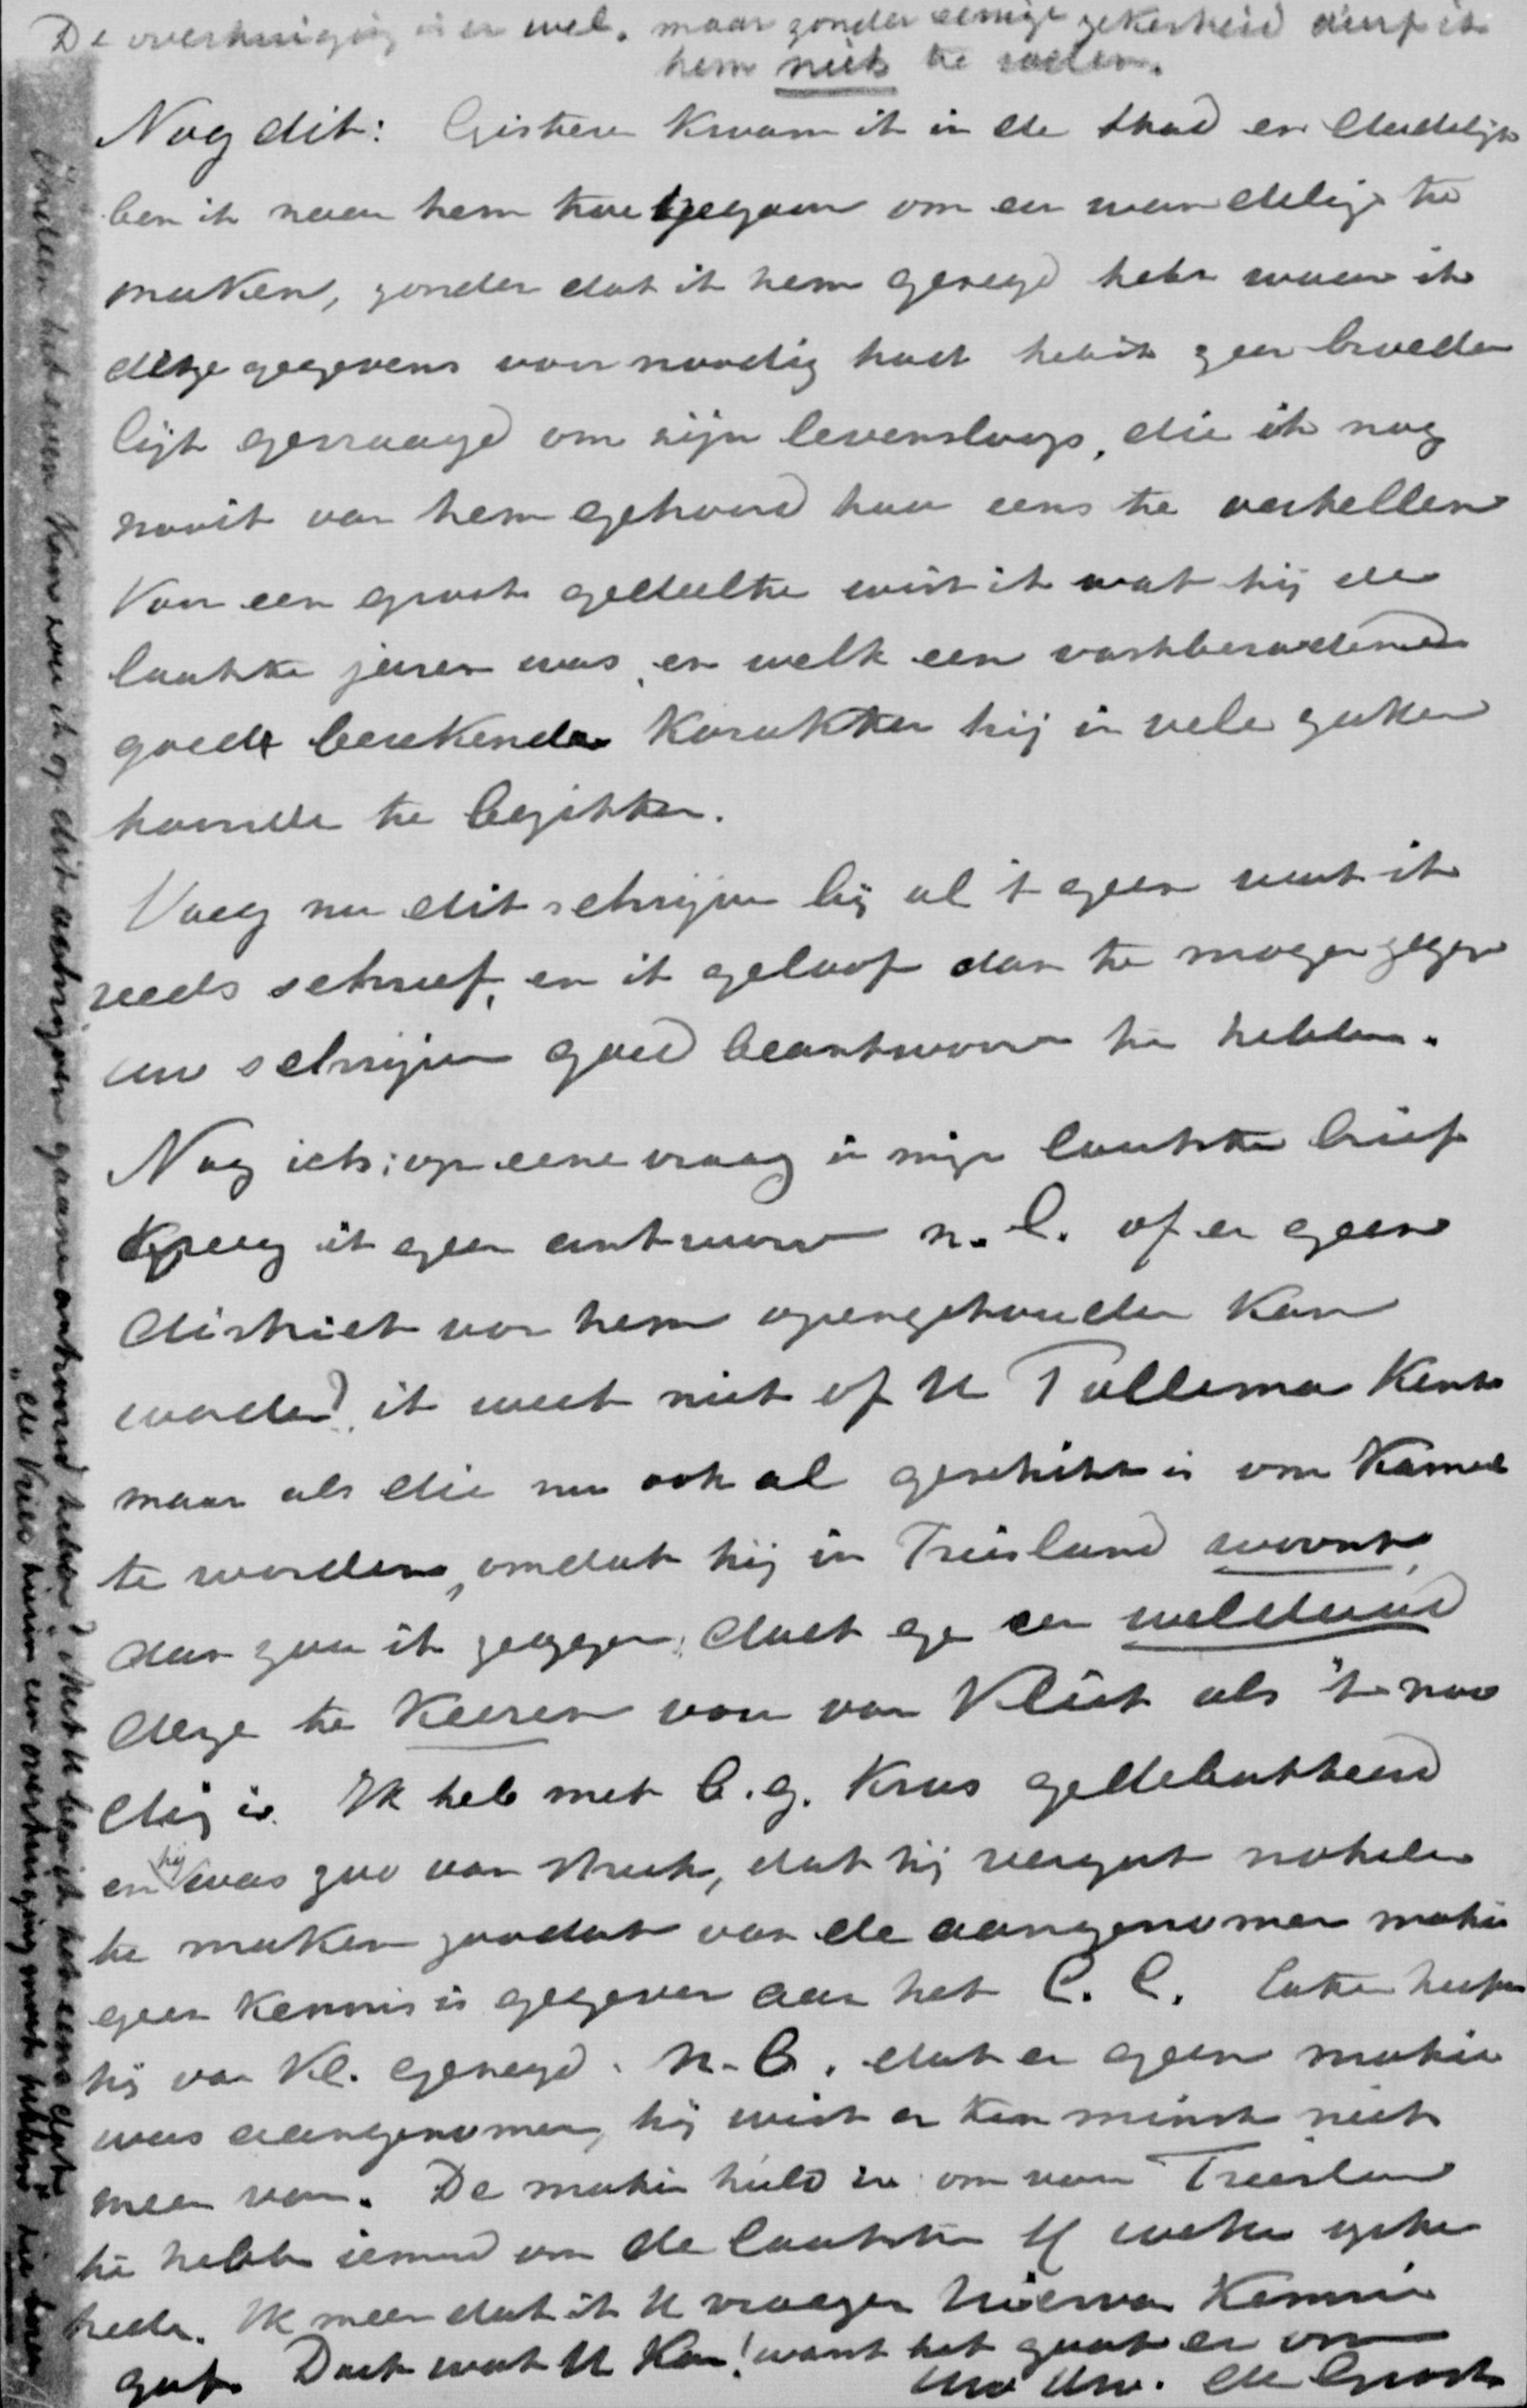 De overtuiging is er wel, maar zonder eenige zekerheid durf ik
hem niet te raden.
Nog dit: Gisteren kwam ik in de stad en dadelijk
ben ik naar hem toegegaan om een wandeling te
maken, zonder dat ik hem gezegd heb waar ik
deze gegevens voor noodig had heb ik zeer broeder
lijk gevraagd om zijn levensloop, die ik nog
nooit van hem gehoord had eens te vertellen
Van een groot gedeelte wist ik wat hij de
laatste jaren was, en welk een vastberadend
goed berekende karakter hij in vele zaken
toonde te bezitten.
Voeg nu dit schrijven bij al 't geen wat ik
reeds schreef, en ik geloof dan te mogen zeggen
uw schrijven goed beantwoord te hebben.
Nog iets; op eene vraag in mijn laatste brief
kreeg ik geen antwoord n.l. of er geen
district voor hem opengehouden kan
worden? ik weet niet of U Tollema kent
maar als die nu ook al geschikt is voor kamerl
te worden, omdat hij in Friesland woont,
dan zou ik zeggen, doet ge een weldaad
deze te keeren voor van Kl als 't noo
dig is. Ik heb met C.g. Kras gedebatteerd
en hij was zoo van streek, dat hij vergat notulen
te maken zoodat van de aangenomen motie
geen kennis is gegeven aan het C. C. Later heeft
hij van Kl. gezegd. N.B. dat er geen motie
was aangenomen, hij wist er ten minste niet
meer van. De motie hield in om van Friesland
te hebben iemand om de laatste 4 weken
Ik meen dat ik U vroeger hiervan kennis
gaf. Doet wat U kan! want het gaat er om
Uw dw. de Groot
Indien het even kan zou ik op dit schrijven gaarne antwoord hebben? Met U ben ik het eens dat
"de Vries hierin een overtuiging moet hebben"